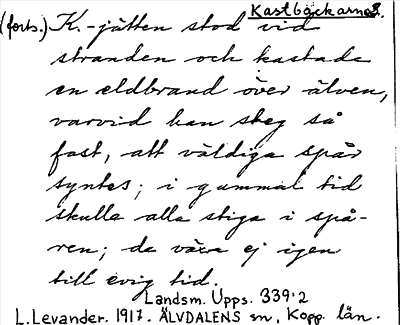 Kastbackarna 8.
(forts.) K.-jätten stod vid
stranden och kastade
en eldbrand över älven,
varvid han steg så
fast, att väldiga spår
syntes; i gammal tid
skulle alla stiga i spå-
ren; de växa ej igen
till evig tid.
Landsm. Upps. 339:2
L. Levander. 1917. ÄLVDALENS sn, Kopp. län.